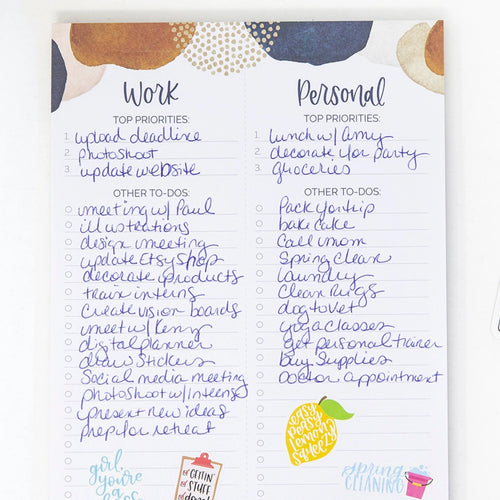 Work
TOP PRIORITIES:
1. upload deadline
2. photoshoot
3. update website
OTHER TO-DOS:
meeting w/ Paul
illustrations
design meeting
update Etsy shop
decorate products
train interns
Create vision boards
meet w/ Kenny
digital planner
draw stickers
Social media meeting
photoshoot w/ interns
present new ideas
prep for retreat
girl,
you're
a
GETTIN'
STUFF
done
Personal
TOP PRIORITIES:
1. lunch w/ Amy
2. decorate for party
3. groceries
OTHER TO-DOS:
Pack for trip
bake cake
Call mom
Spring Clean
laundry
Clean Rugs
dog to vet
yoga classes
get personal trainer
buy Supplies
Doctor appointment
easy
peasy
lemon
squeezy
spring
CLEANING